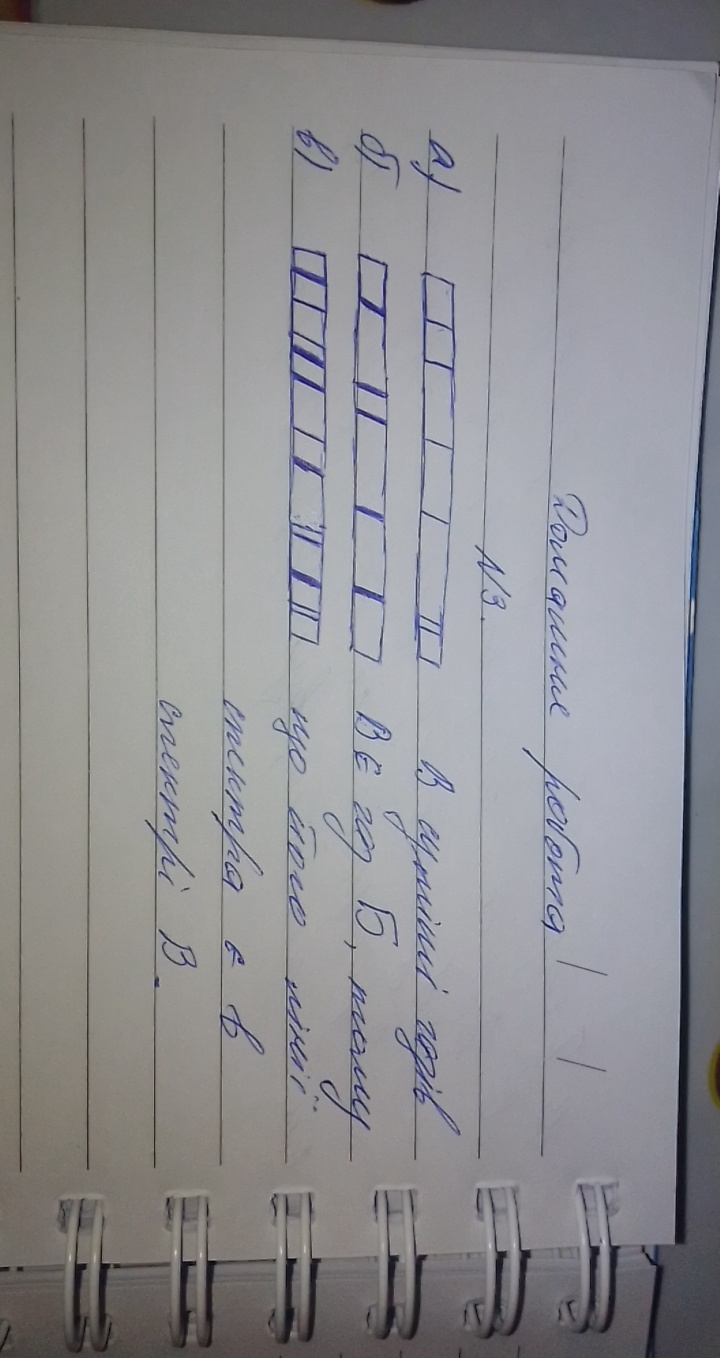 Домашня робота
№3.
а) В суміші газів
б) В є газ Б, тому
в) що його лінії
спектра є в
спектрі В.